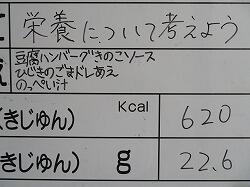 栄養について考えよう
豆腐ハンバーグきのこソース
ひじきのごまドレあえ
のっぺい汁
Kcal
(きじゅん) 620
(きじゅん) g 22.6